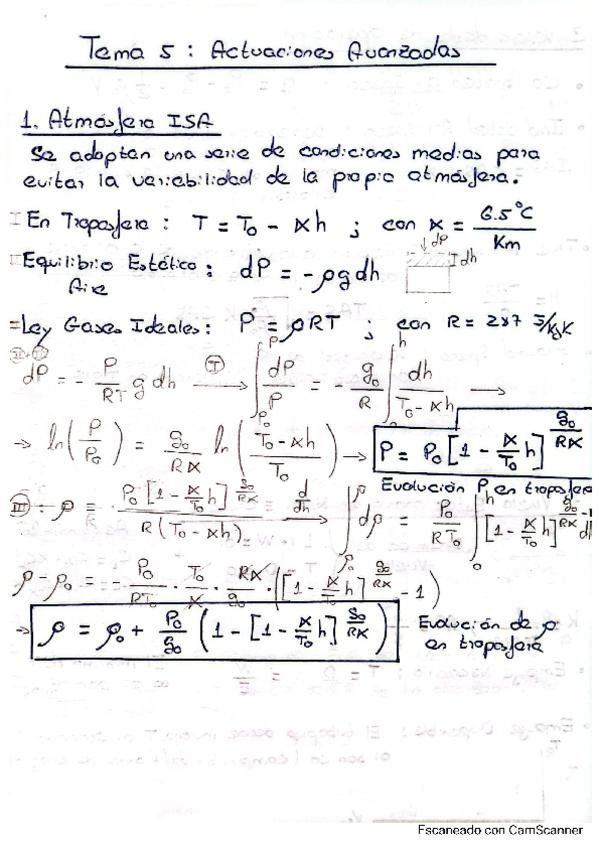 Tema 5 : Actuaciones Avanzadas
1. Atmósfera ISA
Se adoptan una serie de condiciones medias para
evitar la variabilidad de la propia atmósfera.
I En Troposfera : T = T₀ - αh ; con α = 6.5°C / Km
II Equilibrio Estático : dP = -ρg dh dP dh
Aire
Ley Gases Ideales : P = ρRT ; con R = 287 J/kgK
dP = - P/RT g dh (I) → ∫_{P₀}^{P} dP/P = - g₀/R ∫^{h} dh/(T₀-αh) →
→ ln(P/P₀) = g₀/Rα ln((T₀-αh)/T₀) → P = P₀[1 - α/T₀ h]^{g₀/Rα}
Evolución P en troposfera
III : ρ = P₀[1 - α/T₀ h]^{g₀/Rα} / R(T₀-αh) d/dh → ∫_{ρ₀}^{ρ} dρ = P₀/RT₀ ∫^{h} [1 - α/T₀ h]^{g₀/Rα}
ρ - ρ₀ = - P₀/RT₀ · T₀/α · Rα/g₀ · ([1 - α/T₀ h]^{g₀/Rα} - 1)
→ ρ = ρ₀ + P₀/g₀ (1 - [1 - α/T₀ h]^{g₀/Rα}) Evolución de ρ
en troposfera
Escaneado con CamScanner